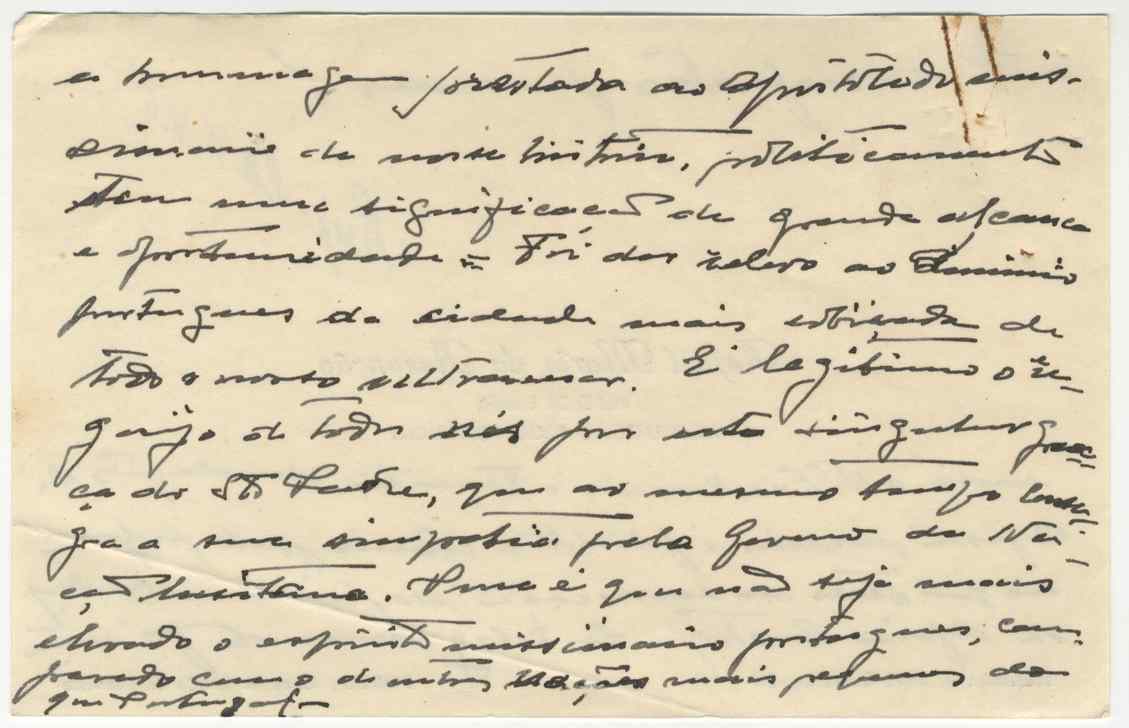 a homenagem prestada ao Apostolado mis-
sionario da nossa historia, politicamente
tem uma significação de grande alcance
e oportunidade = Foi dar relevo ao Dominio
portugues da cidade mais cobiçada de
todo o nosso ultramar. É legitimo o re-
gosijo de todos nós por esta singular gra-
ça do Stº Padre, que ao mesmo tempo consa-
gra a sua simpatia pelo Governo da Na-
ção Lusitana. Pena é que não seja mais
elevado o espirito missionario portugues, com-
parado com o de outras nações mais pequenas do
que Portugal.